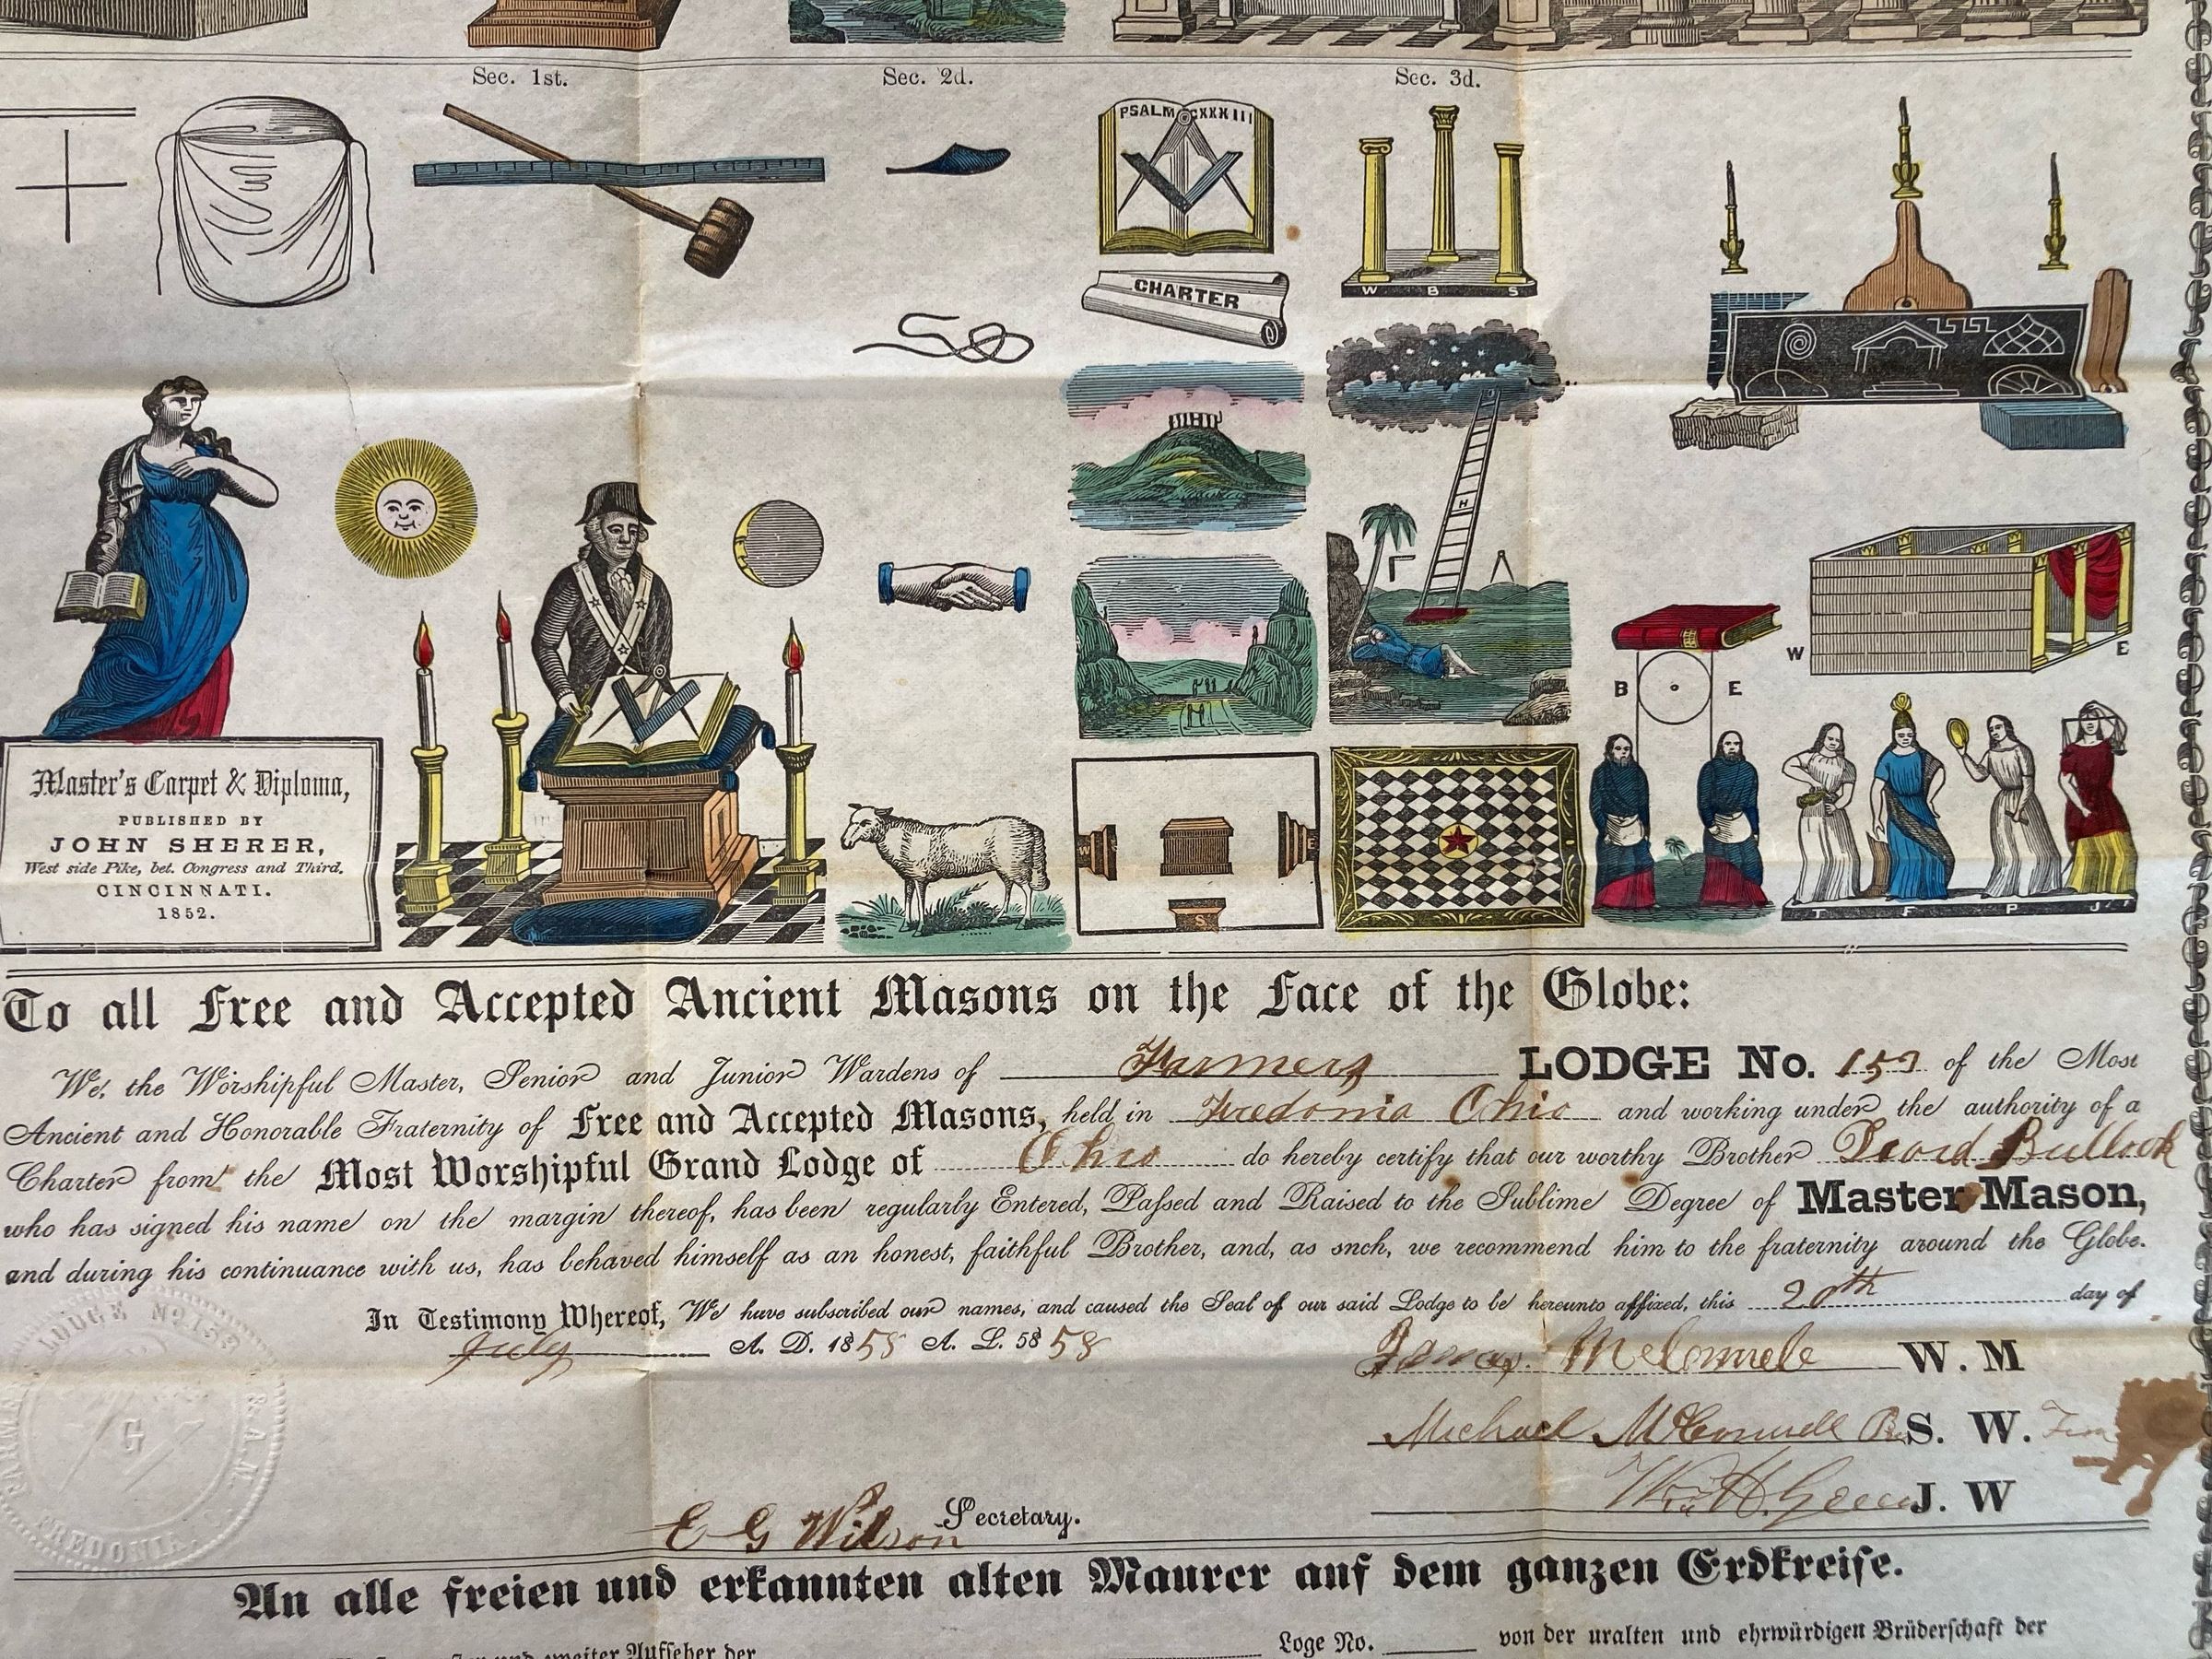 Sec. 1st.
Sec. 2d.
Sec. 3d.
PSALM CXXXIII
CHARTER
W B S
H
W E
B E
W E
S
T F P J
Master's Carpet & Diploma,
PUBLISHED BY
JOHN SHERER,
West side Pike, bet. Congress and Third,
CINCINNATI.
1852.
To all Free and Accepted Ancient Masons on the Face of the Globe:
We, the Worshipful Master, Senior and Junior Wardens of Farmers LODGE No. 153 of the Most
Ancient and Honorable Fraternity of Free and Accepted Masons, held in Fredonia Ohio and working under the authority of a
Charter from the Most Worshipful Grand Lodge of Ohio do hereby certify that our worthy Brother Bullock
who has signed his name on the margin thereof, has been regularly Entered, Passed and Raised to the Sublime Degree of Master Mason,
and during his continuance with us, has behaved himself as an honest, faithful Brother, and, as snch, we recommend him to the fraternity around the Globe.
In Testimony Whereof, We have subscribed our names, and caused the Seal of our said Lodge to be hereunto affixed, this 20th day of
July A. D. 1858 A. L. 5858
W. M
Michael McConnell S. W.
Wm H. Green J. W
E G Wilson Secretary.
LODGE No. 153
& A. M.
G
FREDONIA
An alle freien und erkannten alten Maurer auf dem ganzen Erdkreise.
und zweiter Aufseher der Loge No. von der uralten und ehrwürdigen Brüderschaft der